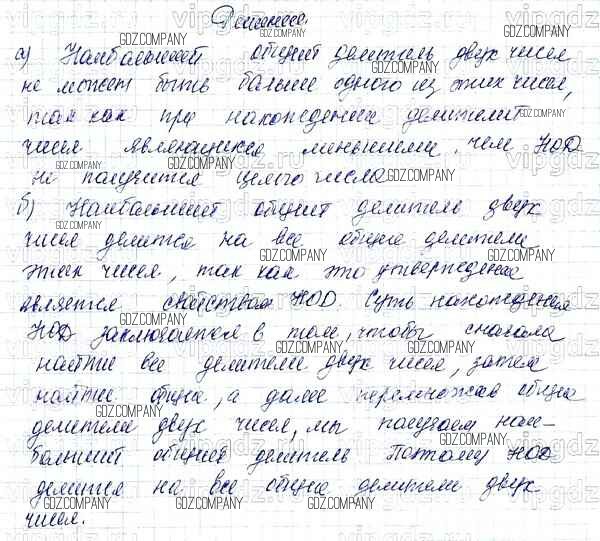 Решение.
а) Наибольший общий делитель двух чисел
не может быть больше одного из этих чисел,
так как при нахождении делителя
чисел являющихся меньшими, чем НОД
не получится целого числа
б) Наибольший общий делитель двух
чисел делится на все общие делители
этих чисел, так как это утверждение
является свойством НОД. Суть нахождения
НОД заключается в том, чтобы сначала
найти все делители двух чисел, затем
найти общие, а далее перемножив общие
делители двух чисел, мы получаем наи-
больший общий делитель Поэтому НОД
делится на все общие делители двух
чисел.
GDZ.COMPANY
vipgdz.ru